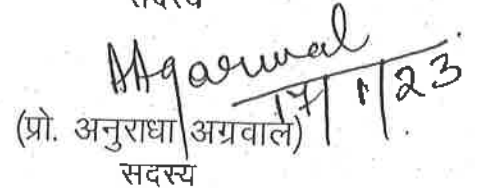 सदस्य
AAgarwal
17/1/23
(प्रो. अनुराधा अग्रवाल)
सदस्य